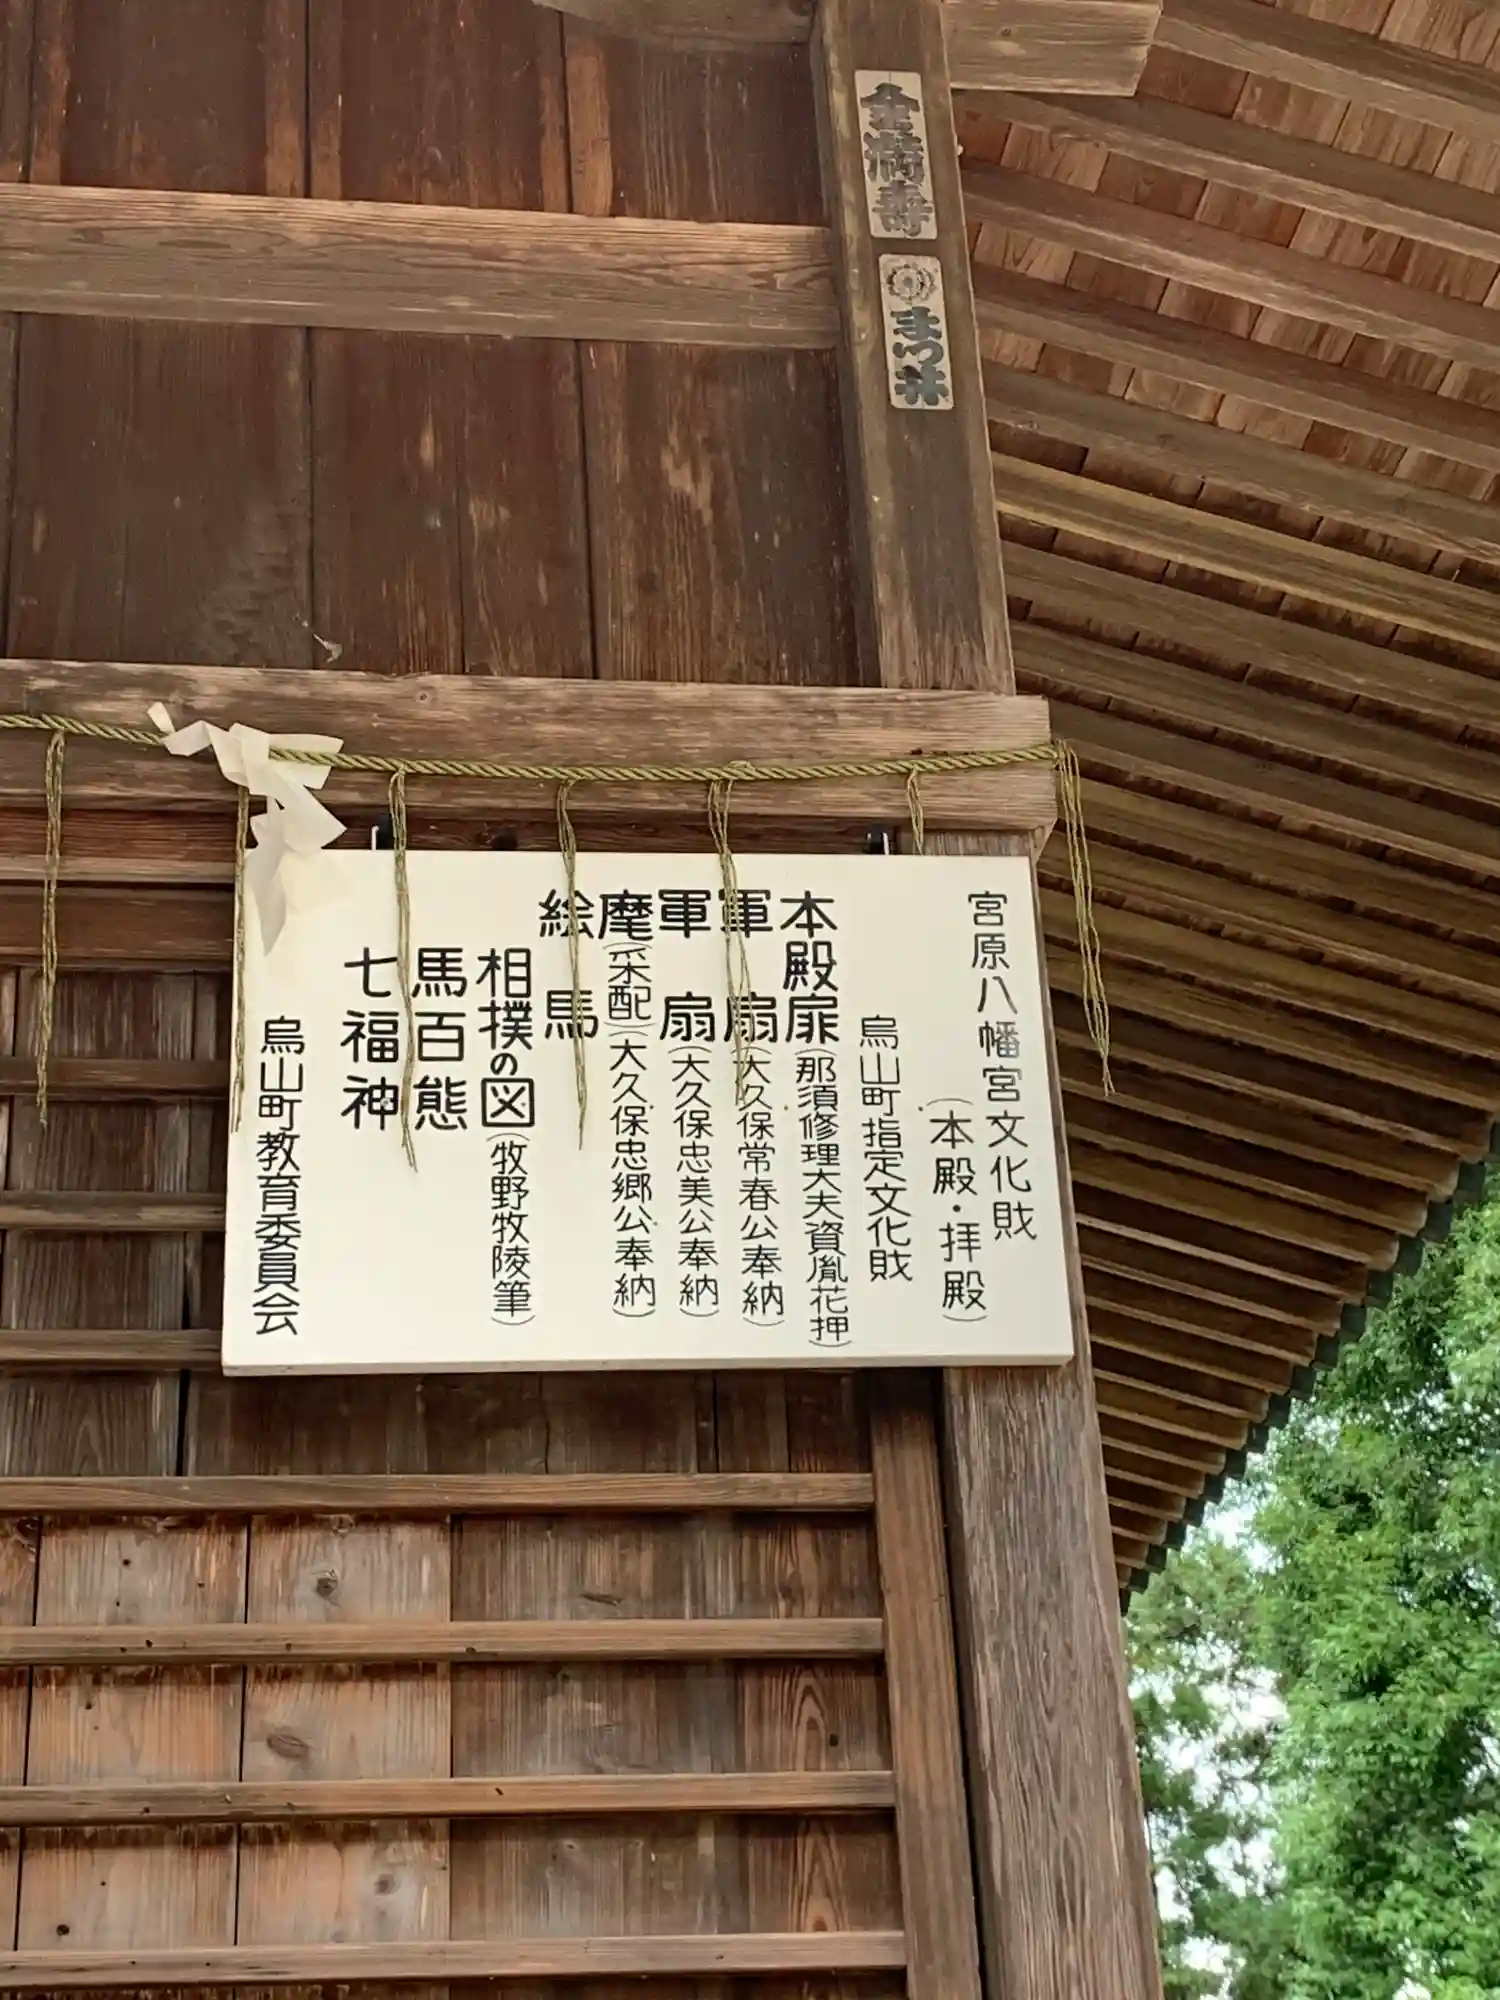 金満壽
まつ井
宮原八幡宮文化財
(本殿・拝殿)
烏山町指定文化財
本殿扉(那須修理大夫資胤花押)
軍扇(大久保常春公奉納)
軍扇(大久保忠美公奉納)
麾(采配)(大久保忠郷公奉納)
絵馬
相撲の図(牧野牧陵筆)
馬百態
七福神
烏山町教育委員会